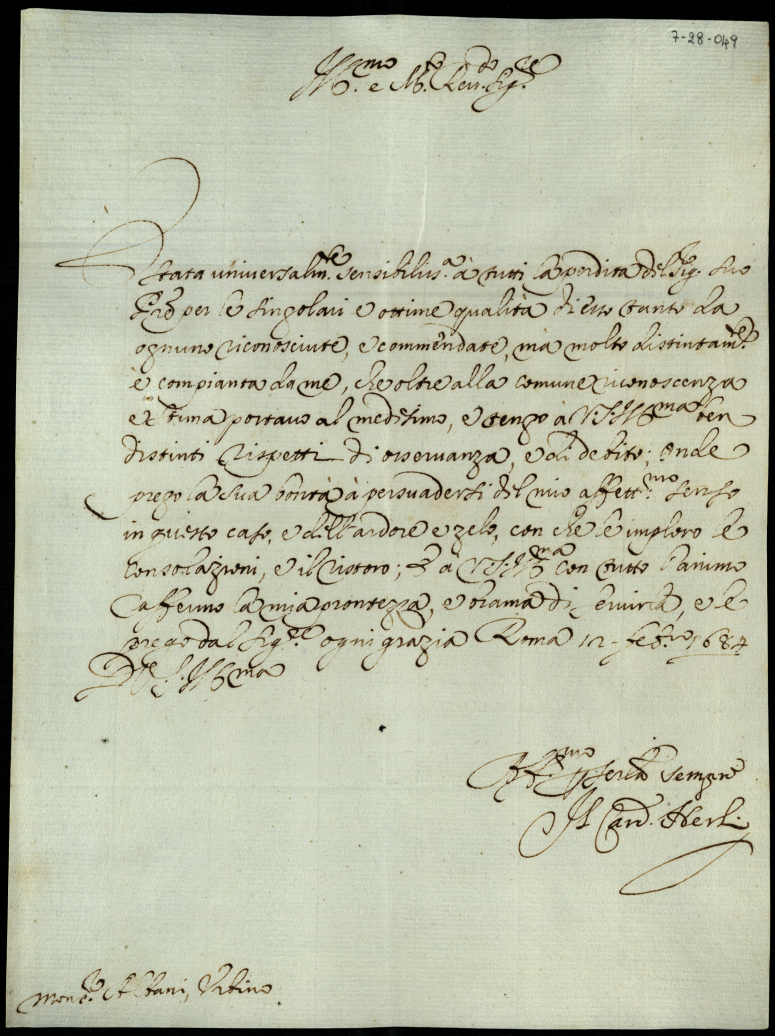 7-28-049
Ill.mo e M.to Rev.do Sig.re
È stata universalm.te sensibiliss.a à tutti la perdita del Sig. suo
per le singolari e ottime qualità di esso tanto da
ognuno riconosciute, e commendate, mà molto distintam.te
è compianta da me, che oltre alla comune riconoscenza
et stima portavo al medesimo, e tengo à V.S. Ill.ma ben
distinti rispetti di osservanza, e di debito; Onde
prego la sua bontà à persuadersi del mio affett.mo senso
in questo caso, e dell'ardore e zelo, con che le imploro le
consolazioni, e il ristoro; Et à V.S. Ill.ma con tutto l'animo
affermo la mia prontezza, e brama di servirla, e le
prego dal Sig.re ogni grazia Roma 12 feb.ro 1684
D V.S. Ill.ma
Aff.mo per ser.la sempre
Il Card.
Mons.r Albani, Urbino